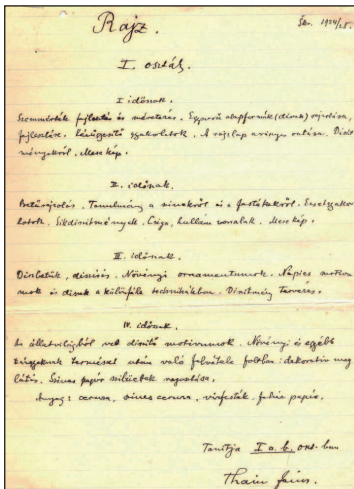 Rajz.
1924/25.
I. osztály.
I időszak.
Szemmérték fejlesztés és méretezés. Egyszerű alapformák (díszek) rajzolása,
fejlesztése. Kézügyesítő gyakorlatok. A rajzlap arányos osztása. Díszít-
ményekről. Mesekép.
II. időszak.
Betűrajzolás. Tanulmány a színekről és a festékekről. Ecsetgyakor-
latok. Síkdíszítmények. Csiga, hullám vonalak. Mesekép.
III. időszak.
Díszbetűk, díszírás. Növényi ornamentumok. Népies motívu-
mok és díszek a különféle technikákban. Díszítmény tervezés.
IV. időszak.
Az állatvilágból vett díszítő motívumok. Növényi és egyéb
tárgyaknak természet után való felvétele foltban: dekoratív meg
látás. Színes papír sziluettek ragasztása.
Anyag: ceruza, színes ceruza, vízfesték, fehér papír.
Tanítja I a. b. oszt.-ban
Thain János.